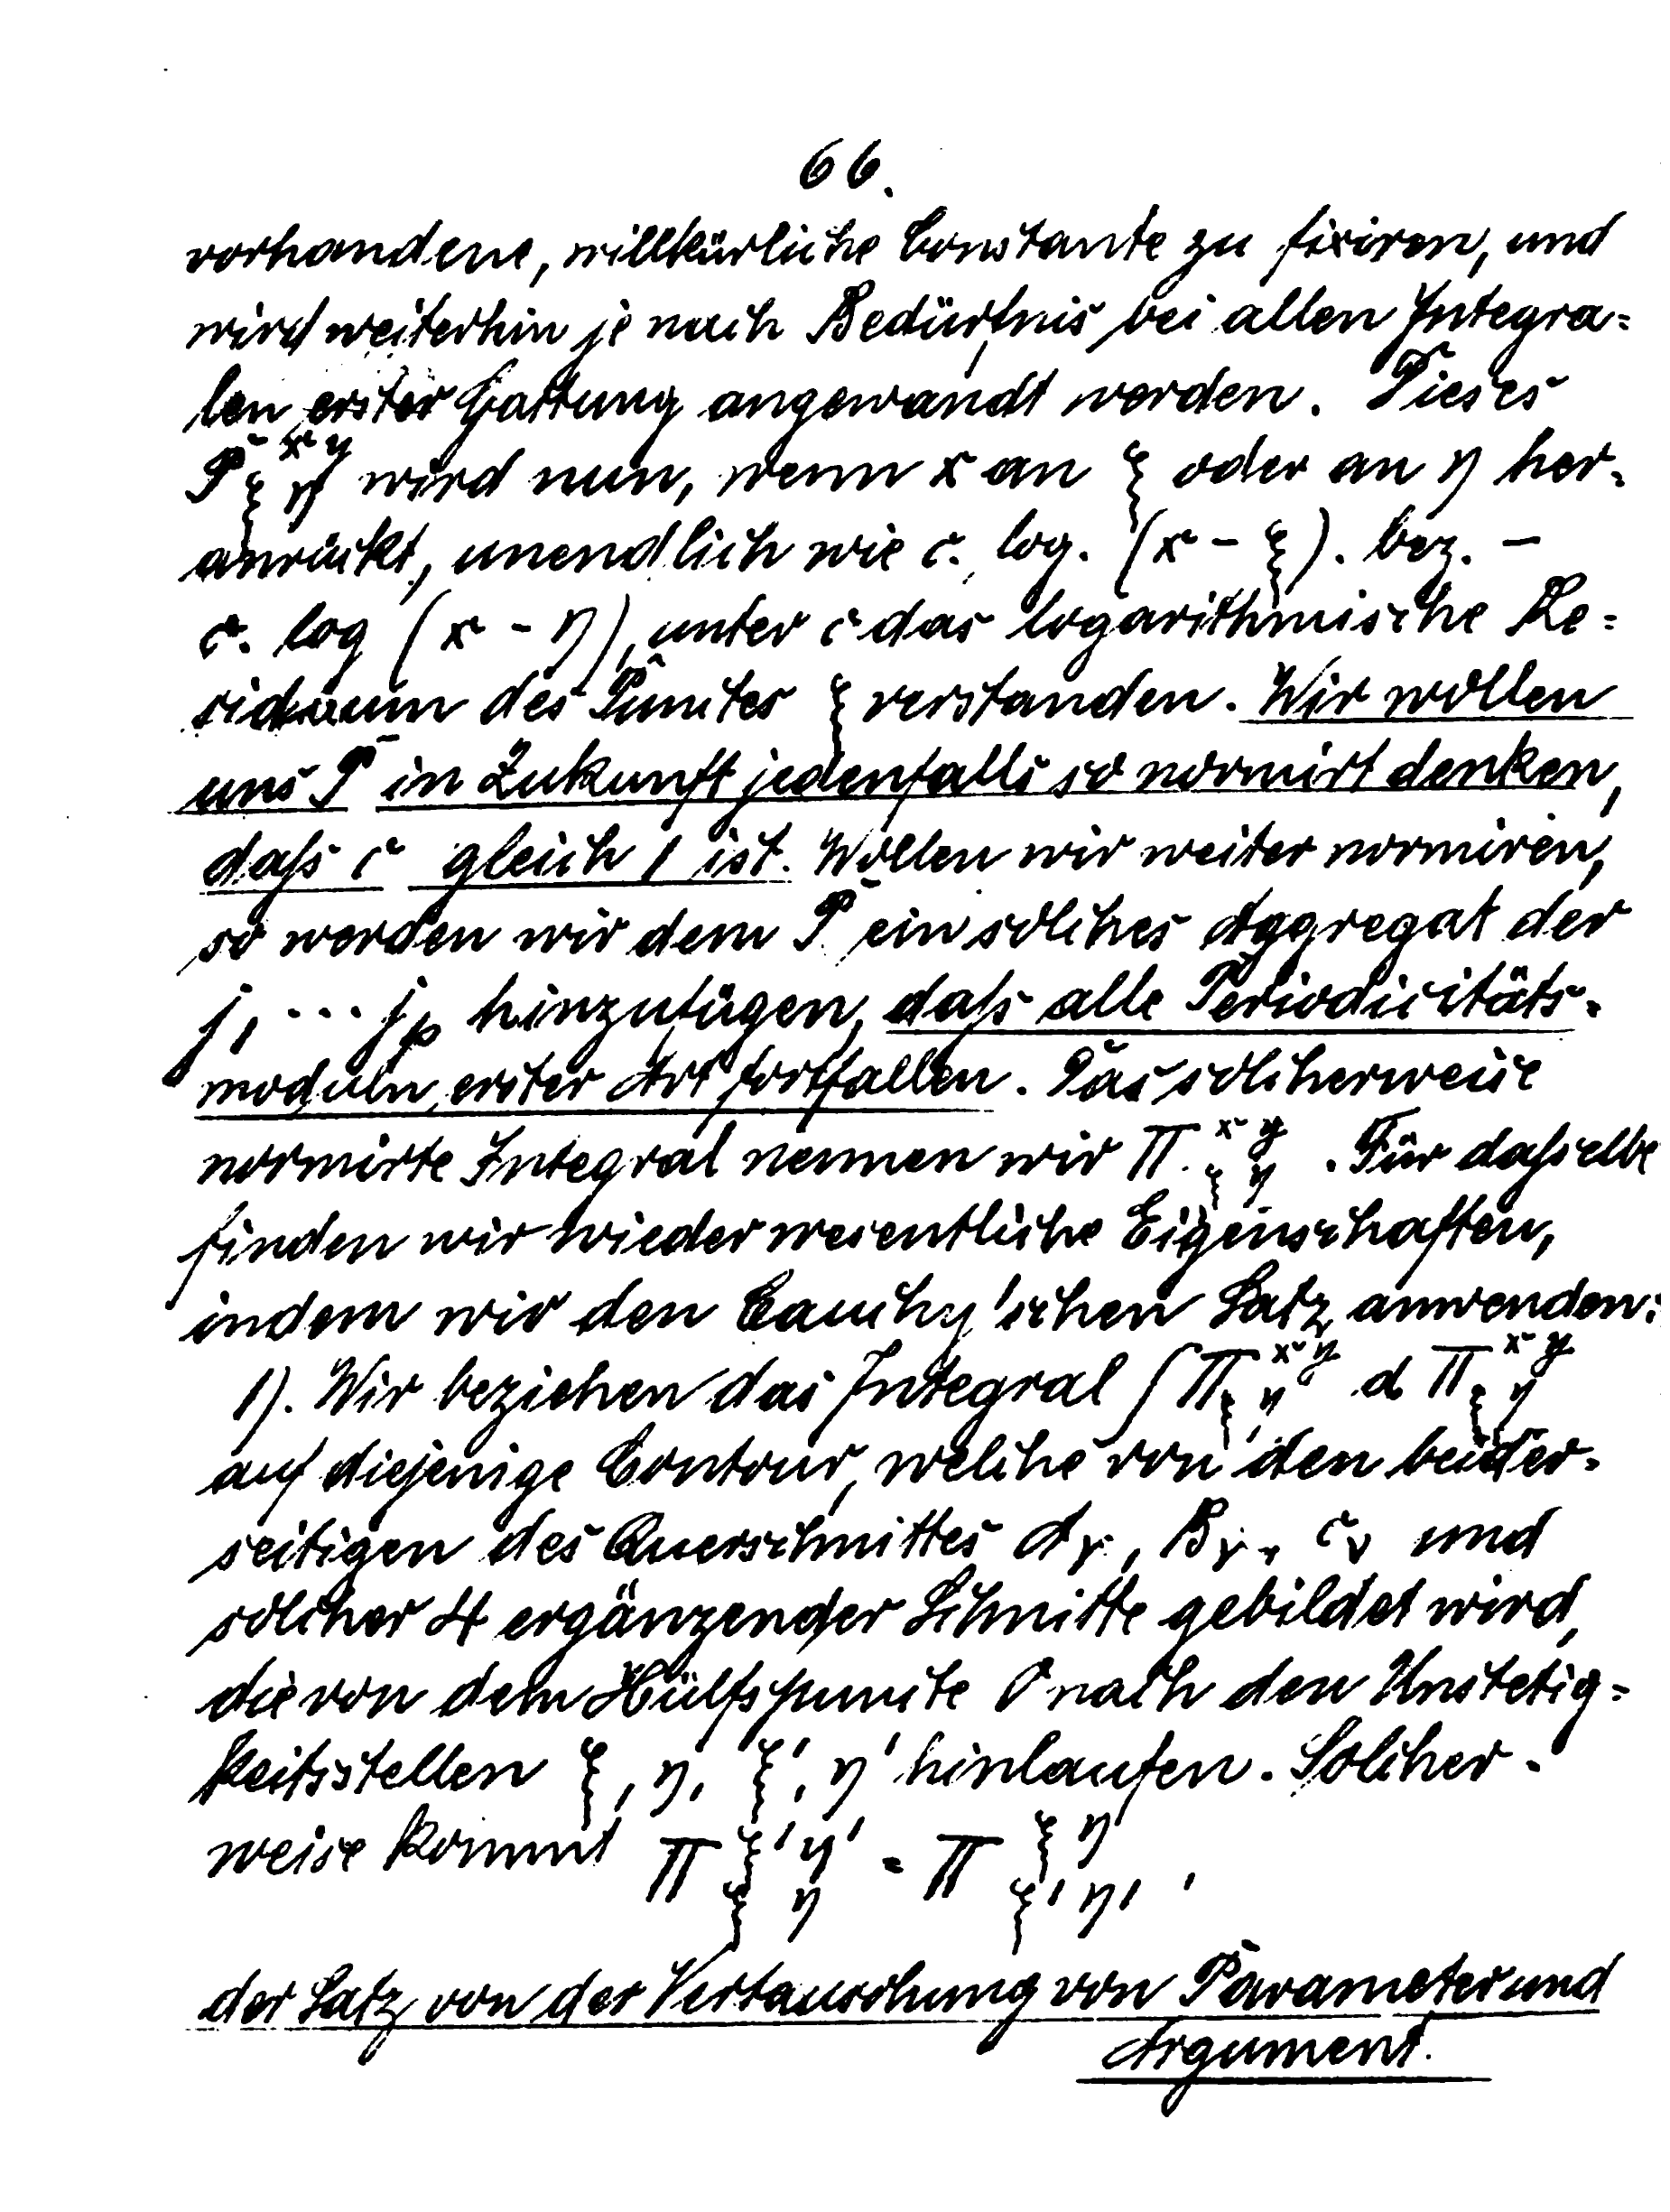 66.
vorhandene, willkürliche Constante zu fixiren, und
wird weiterhin je nach Bedürfnis bei allen Integra=
len erster Gattung angewandt werden. Dieses
P^{x y}_{ξ η} wird nun, wenn x an ξ oder an η her=
anrückt, unendlich wie c. log. (x - ξ). bez. -
c. log (x - η), unter c das logarithmische Re=
siduum des Punctes ξ verstanden. Wir wollen
uns P in Zukunft jedenfalls so normirt denken,
daſs c gleich 1 ist. Wollen wir weiter normiren,
so werden wir dem P ein solches Aggregat der
j_1 ... j_p hinzufügen, daſs alle Periodicitäts=
moduln erster Art fortfallen. Das solcherweise
normirte Integral nennen wir Π^{x y}_{ξ η}. Für daſselbe
finden wir wieder wesentliche Eigenschaften,
indem wir den Cauchy'schen Satz anwenden:
1). Wir beziehen das Integral ∫Π^{x y}_{ξ η} d Π^{x y}_{ξ' η'}
auf diejenige Contour, welche von den beider=
seitigen des Querschnittes A_ν, B_ν, C_ν und
solcher 4 ergänzender Schnitte gebildet wird,
die von dem Hülfspuncte O nach den Unstetig=
keitsstellen ξ, η, ξ', η' hinlaufen. Solcher=
weise kommt Π^{ξ' η'}_{ξ η} = Π^{ξ η}_{ξ' η'},
der Satz von der Vertauschung von Parameter und
Argument.